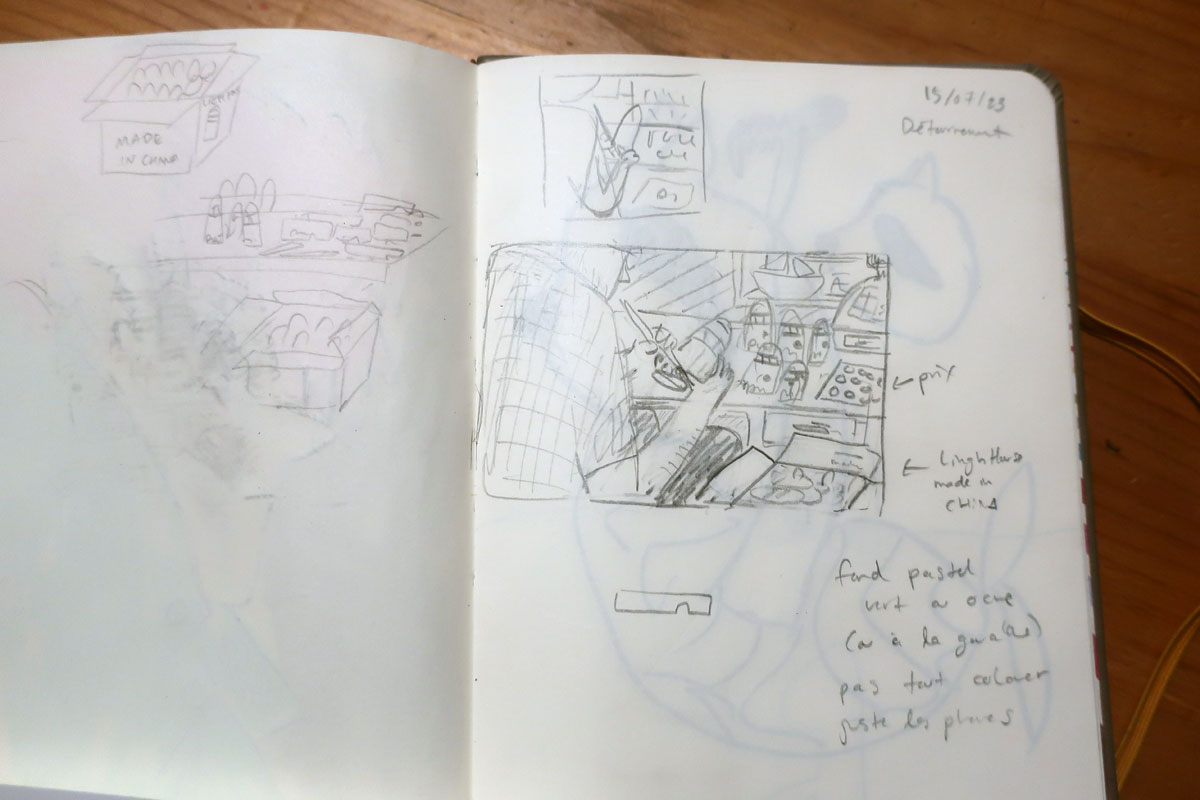 MADE
IN CHINA
15/07/23
Détournement
prix
Linght House
made in
CHINA
fond pastel
vert ou ocre
(ou à la gouache)
pas tout colorer
juste les phares